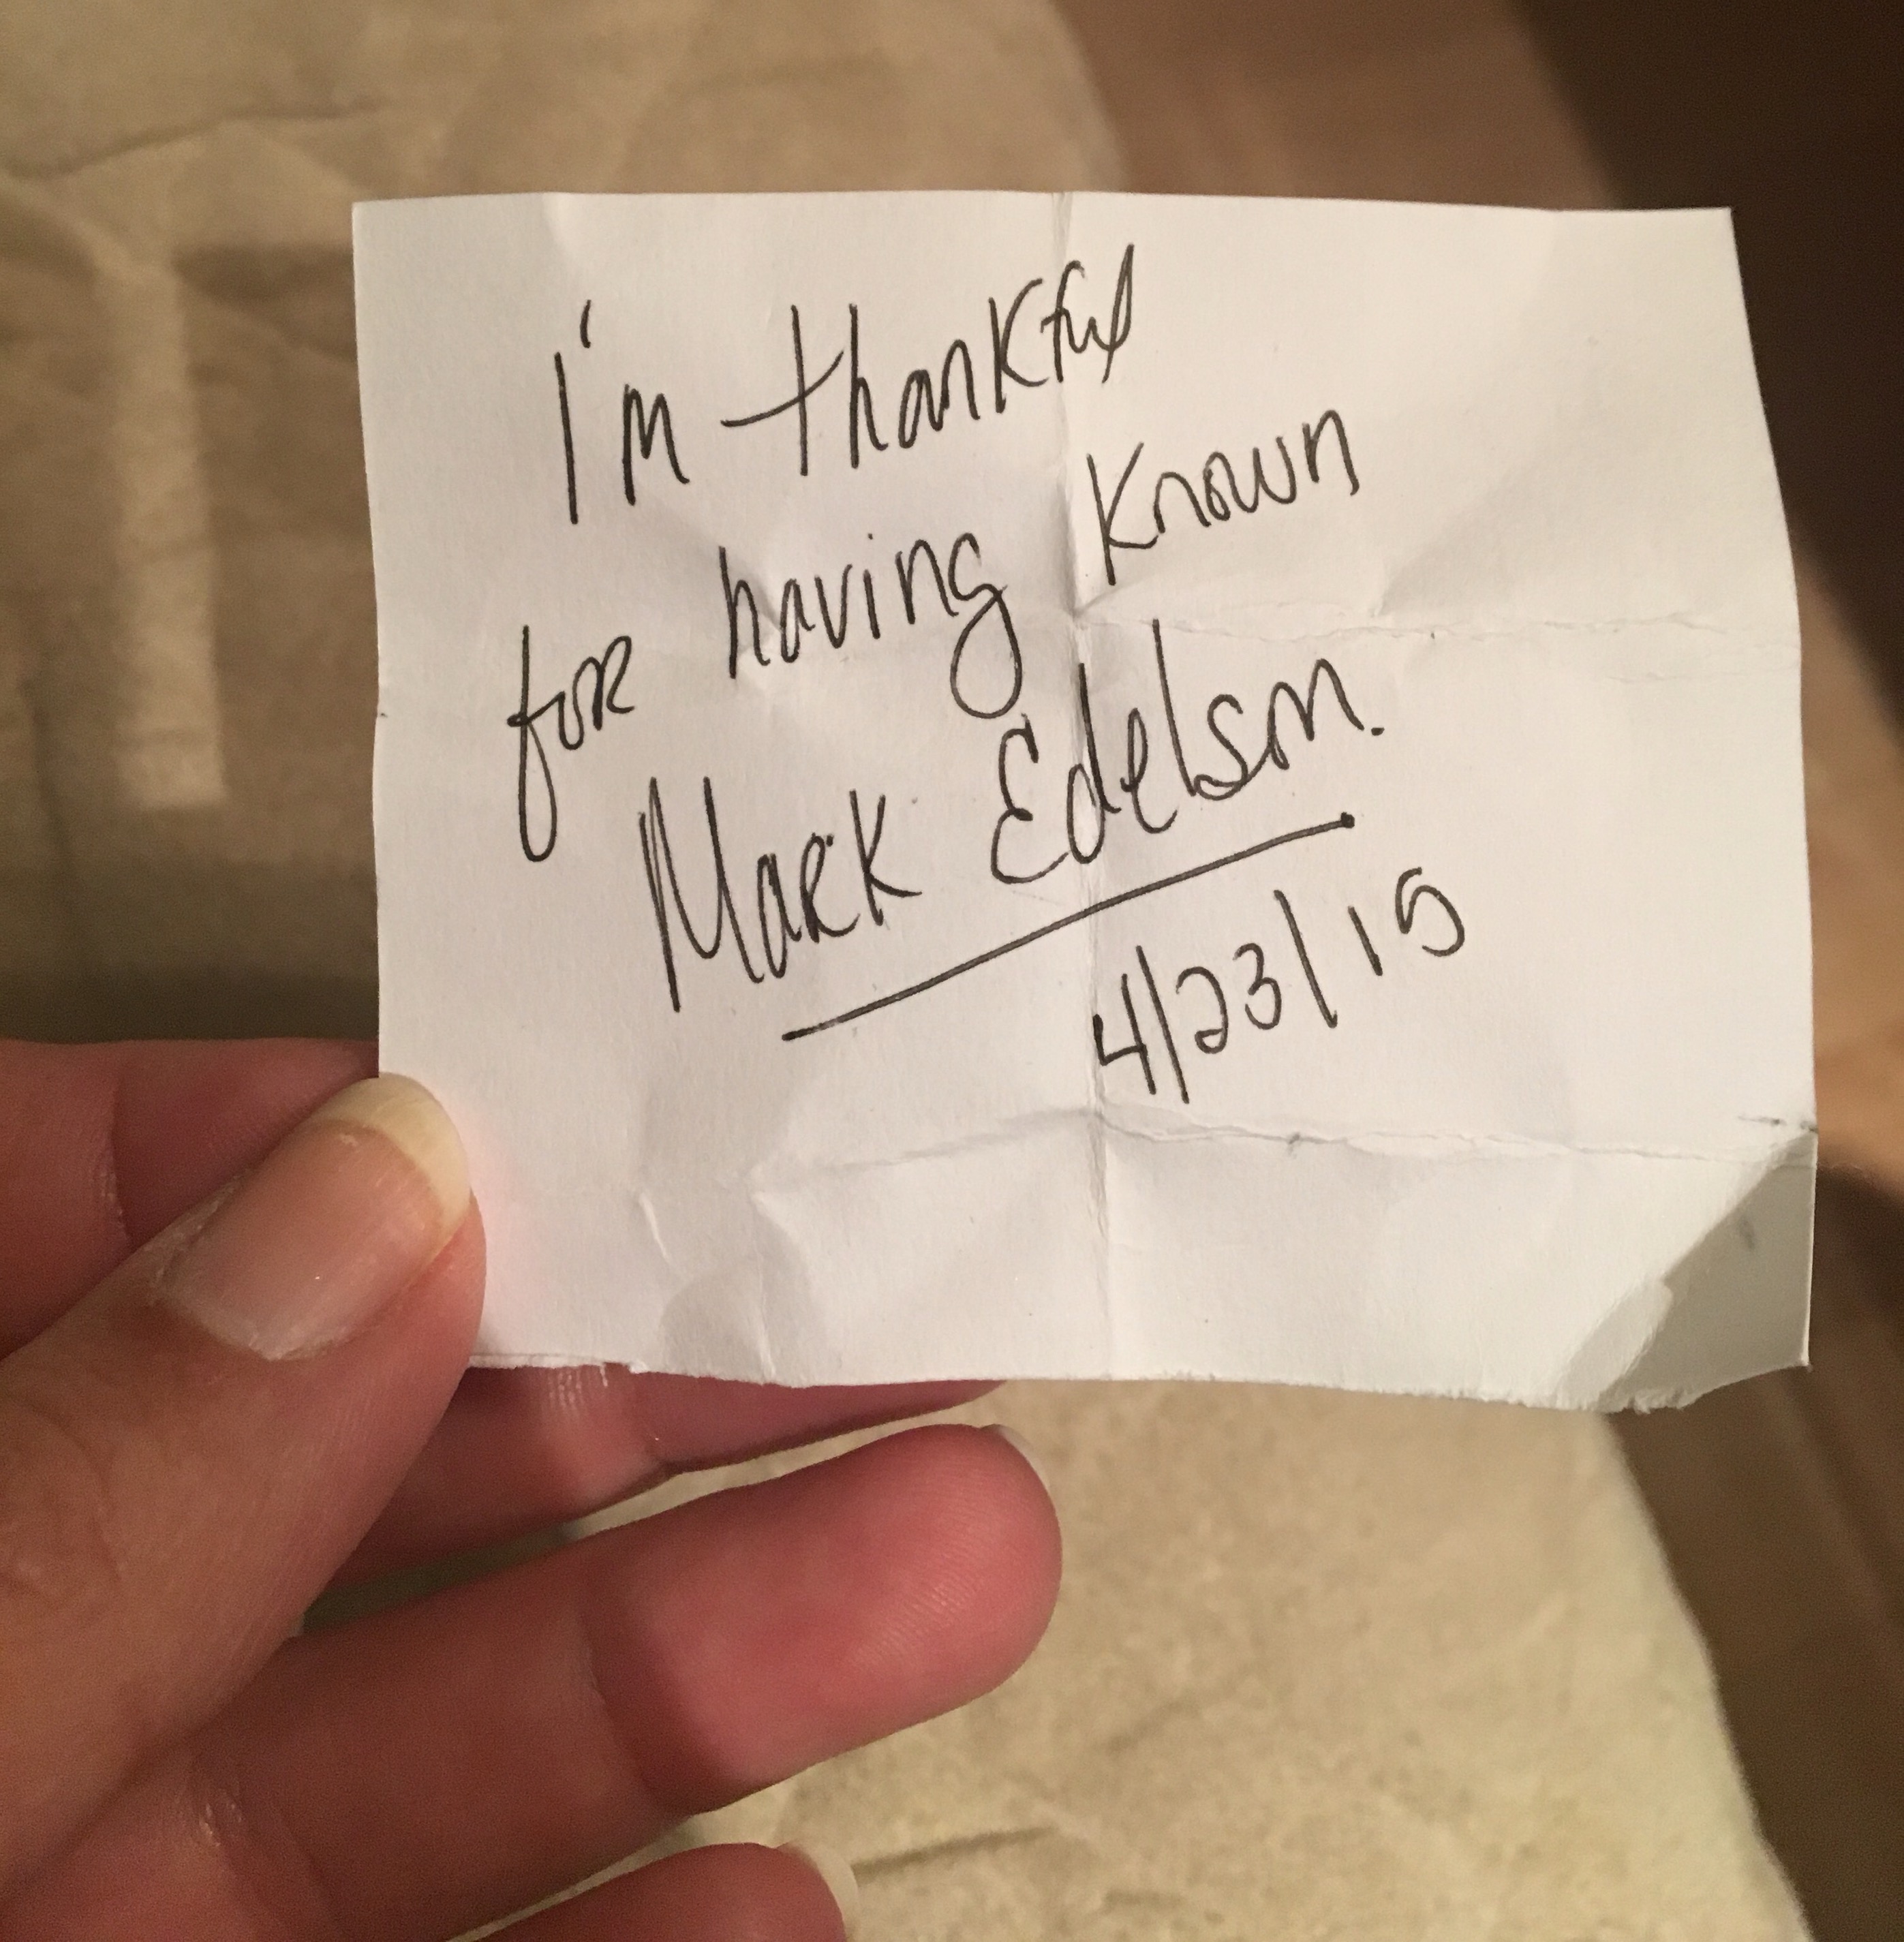 I'm thankful
for having known
Mark Edelson.
4/23/15